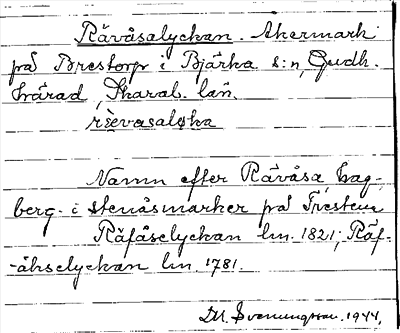 Rävåsalyckan. Åkermark
på Brestorp i Bjärka s:n, Gudh.
härad, Skarab. län.
Namn efter Rävåsa, hag-
berg i stenåsmarker på
Räfåselyckan lm. 1821; Räf-
-åhselyckan lm. 1781.
D.M. Svenungsson. 1944.